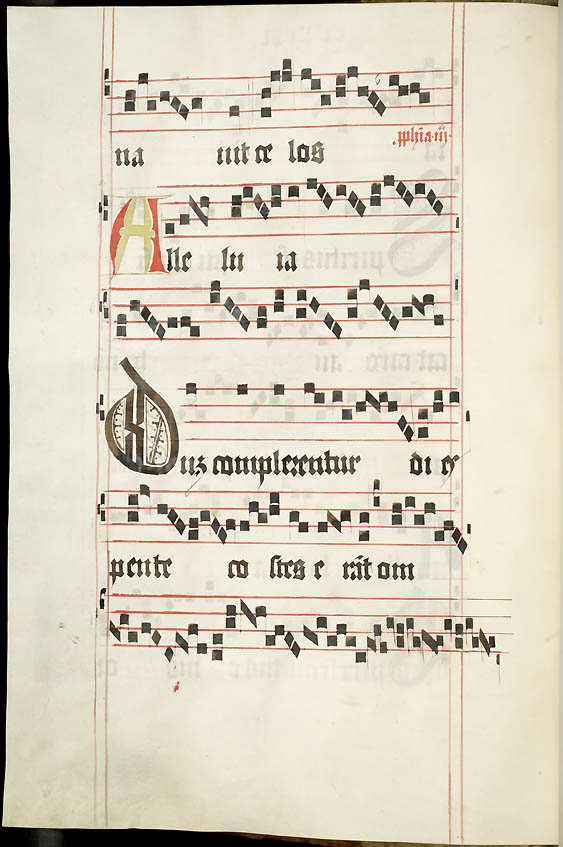 na uit ce los
Alle lu ia
Duz complerentur di es
pente co stes e rāt om